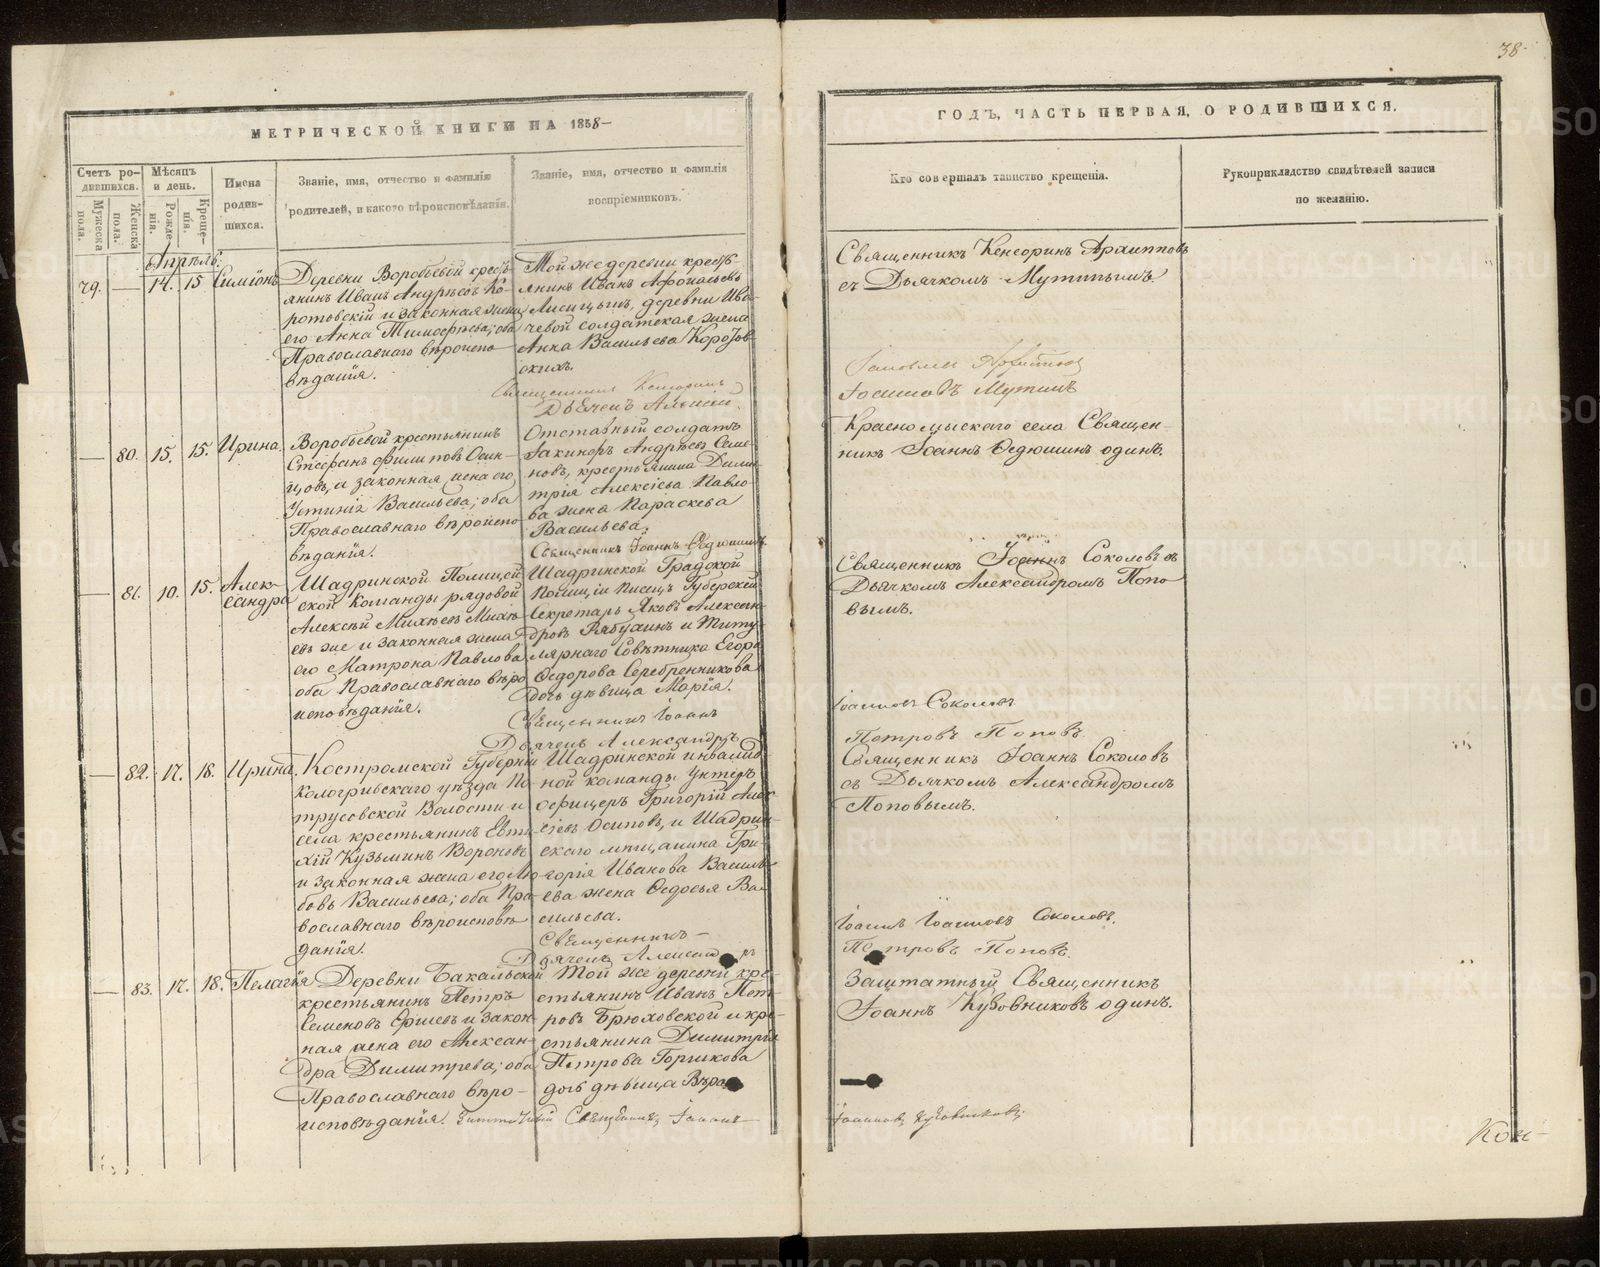 38
МЕТРИЧЕСКОЙ КНИГИ НА 1858
ГОДЪ, ЧАСТЬ ПЕРВАЯ, О РОДИВШИХСЯ.
Счетъ родившихся.
Мужеска пола.
Женска пола.
Мѣсяцъ и день.
Рожденія.
Крещенія.
Имена родившихся.
Званіе, имя, отчество и фамилія
родителей, и какого вѣроисповѣданія.
Званіе, имя, отчество и фамилія
воспріемниковъ.
Кто совершалъ таинство крещенія.
Рукоприкладство свидѣтелей записи
по желанію.
Апрѣль.
79. — 14. 15 Симіонъ
Деревни Воробьевой кресть-
янинъ Иванъ Андрѣевъ Ко-
ротовскій и законная жена
его Анна Тимофѣева; оба
Православнаго вѣроиспо-
вѣданія.
Той же деревни кресть-
янинъ Иванъ Афонасьевъ
Лисицынъ, деревни Ива-
чевой солдатская жена
Анна Васильева
Священникъ Кенсоринъ
Дьячекъ Алексій
Священникъ Кенсоринъ Архипповъ
съ Дьячкомъ Мутинымъ.
Іоанновъ Мутинъ
— 80. 15. 15. Ирина
Воробьевой крестьянинъ
Стефанъ Филиповъ Осин-
цовъ, и законная жена его
Устинія Васильева; оба
Православнаго вѣроиспо-
вѣданія.
Отставный солдатъ
Никифоръ Андрѣевъ Семе-
новъ, крестьянина Дими-
трія Алексіева Павло-
ва жена Параскева
Васильева.
Священникъ Іоаннъ Ѳедюшинъ
Красномыскаго села Священ-
никъ Іоаннъ Ѳедюшинъ одинъ.
— 81. 10. 15. Алек-
сандра
Шадринской Полицей-
ской Команды рядовой
Алексѣй Михѣевъ Михѣ-
евъ же и законная жена
его Матрона Павлова
оба Православнаго вѣро
исповѣданія.
Шадринской Градской
Полиціи Писецъ Губернскій
Секретарь Яковъ Алексан-
дровъ Рябухинъ и Титу-
лярнаго Совѣтника Егора
Ѳедорова Серебренникова
дочь дѣвица Марія.
Священникъ Іоаннъ
Дьячекъ Александръ
Священникъ Іоаннъ Соколовъ съ
Дьячкомъ Александромъ Попо
вымъ.
Іоанновъ Соколовъ
Петровъ Поповъ
— 82. 17. 18. Ирина.
Костромской Губерніи
Кологривскаго уѣзда Пе-
трусовской Волости и
села крестьянинъ Евти-
хій Кузьминъ Вороновъ
и законная жена его Лю-
бовь Васильева; оба Пра-
вославнаго вѣроисповѣ
данія.
Шадринской инвалид-
ной команды Унтеръ
офицеръ Григорій Алек-
сіевъ Осиповъ, и Шадрин-
скаго мѣщанина Гри-
горія Иванова Василь-
ева жена Ѳедосья Ва-
сильева.
Священникъ —
Дьячекъ Александръ
Священникъ Іоаннъ Соколовъ
съ Дьячкомъ Александромъ
Поповымъ.
Іоаннъ Іоанновъ Соколовъ.
Петровъ Поповъ.
— 83. 17. 18. Пелагія
Деревни Бакальской
крестьянинъ Петръ
Семеновъ Ершевъ и закон-
ная жена его Алексан-
дра Димитрева; оба
Православнаго вѣро-
исповѣданія.
Той же деревни кре-
стьянинъ Иванъ Пет-
ровъ Брюховской и кре-
стьянина Димитрія
Петрова Горшкова
дочь дѣвица Вѣра
Заштатный Священникъ Іоаннъ
Заштатный Священникъ
Іоаннъ Кузовниковъ одинъ.
Іоанновъ Кузовниковъ